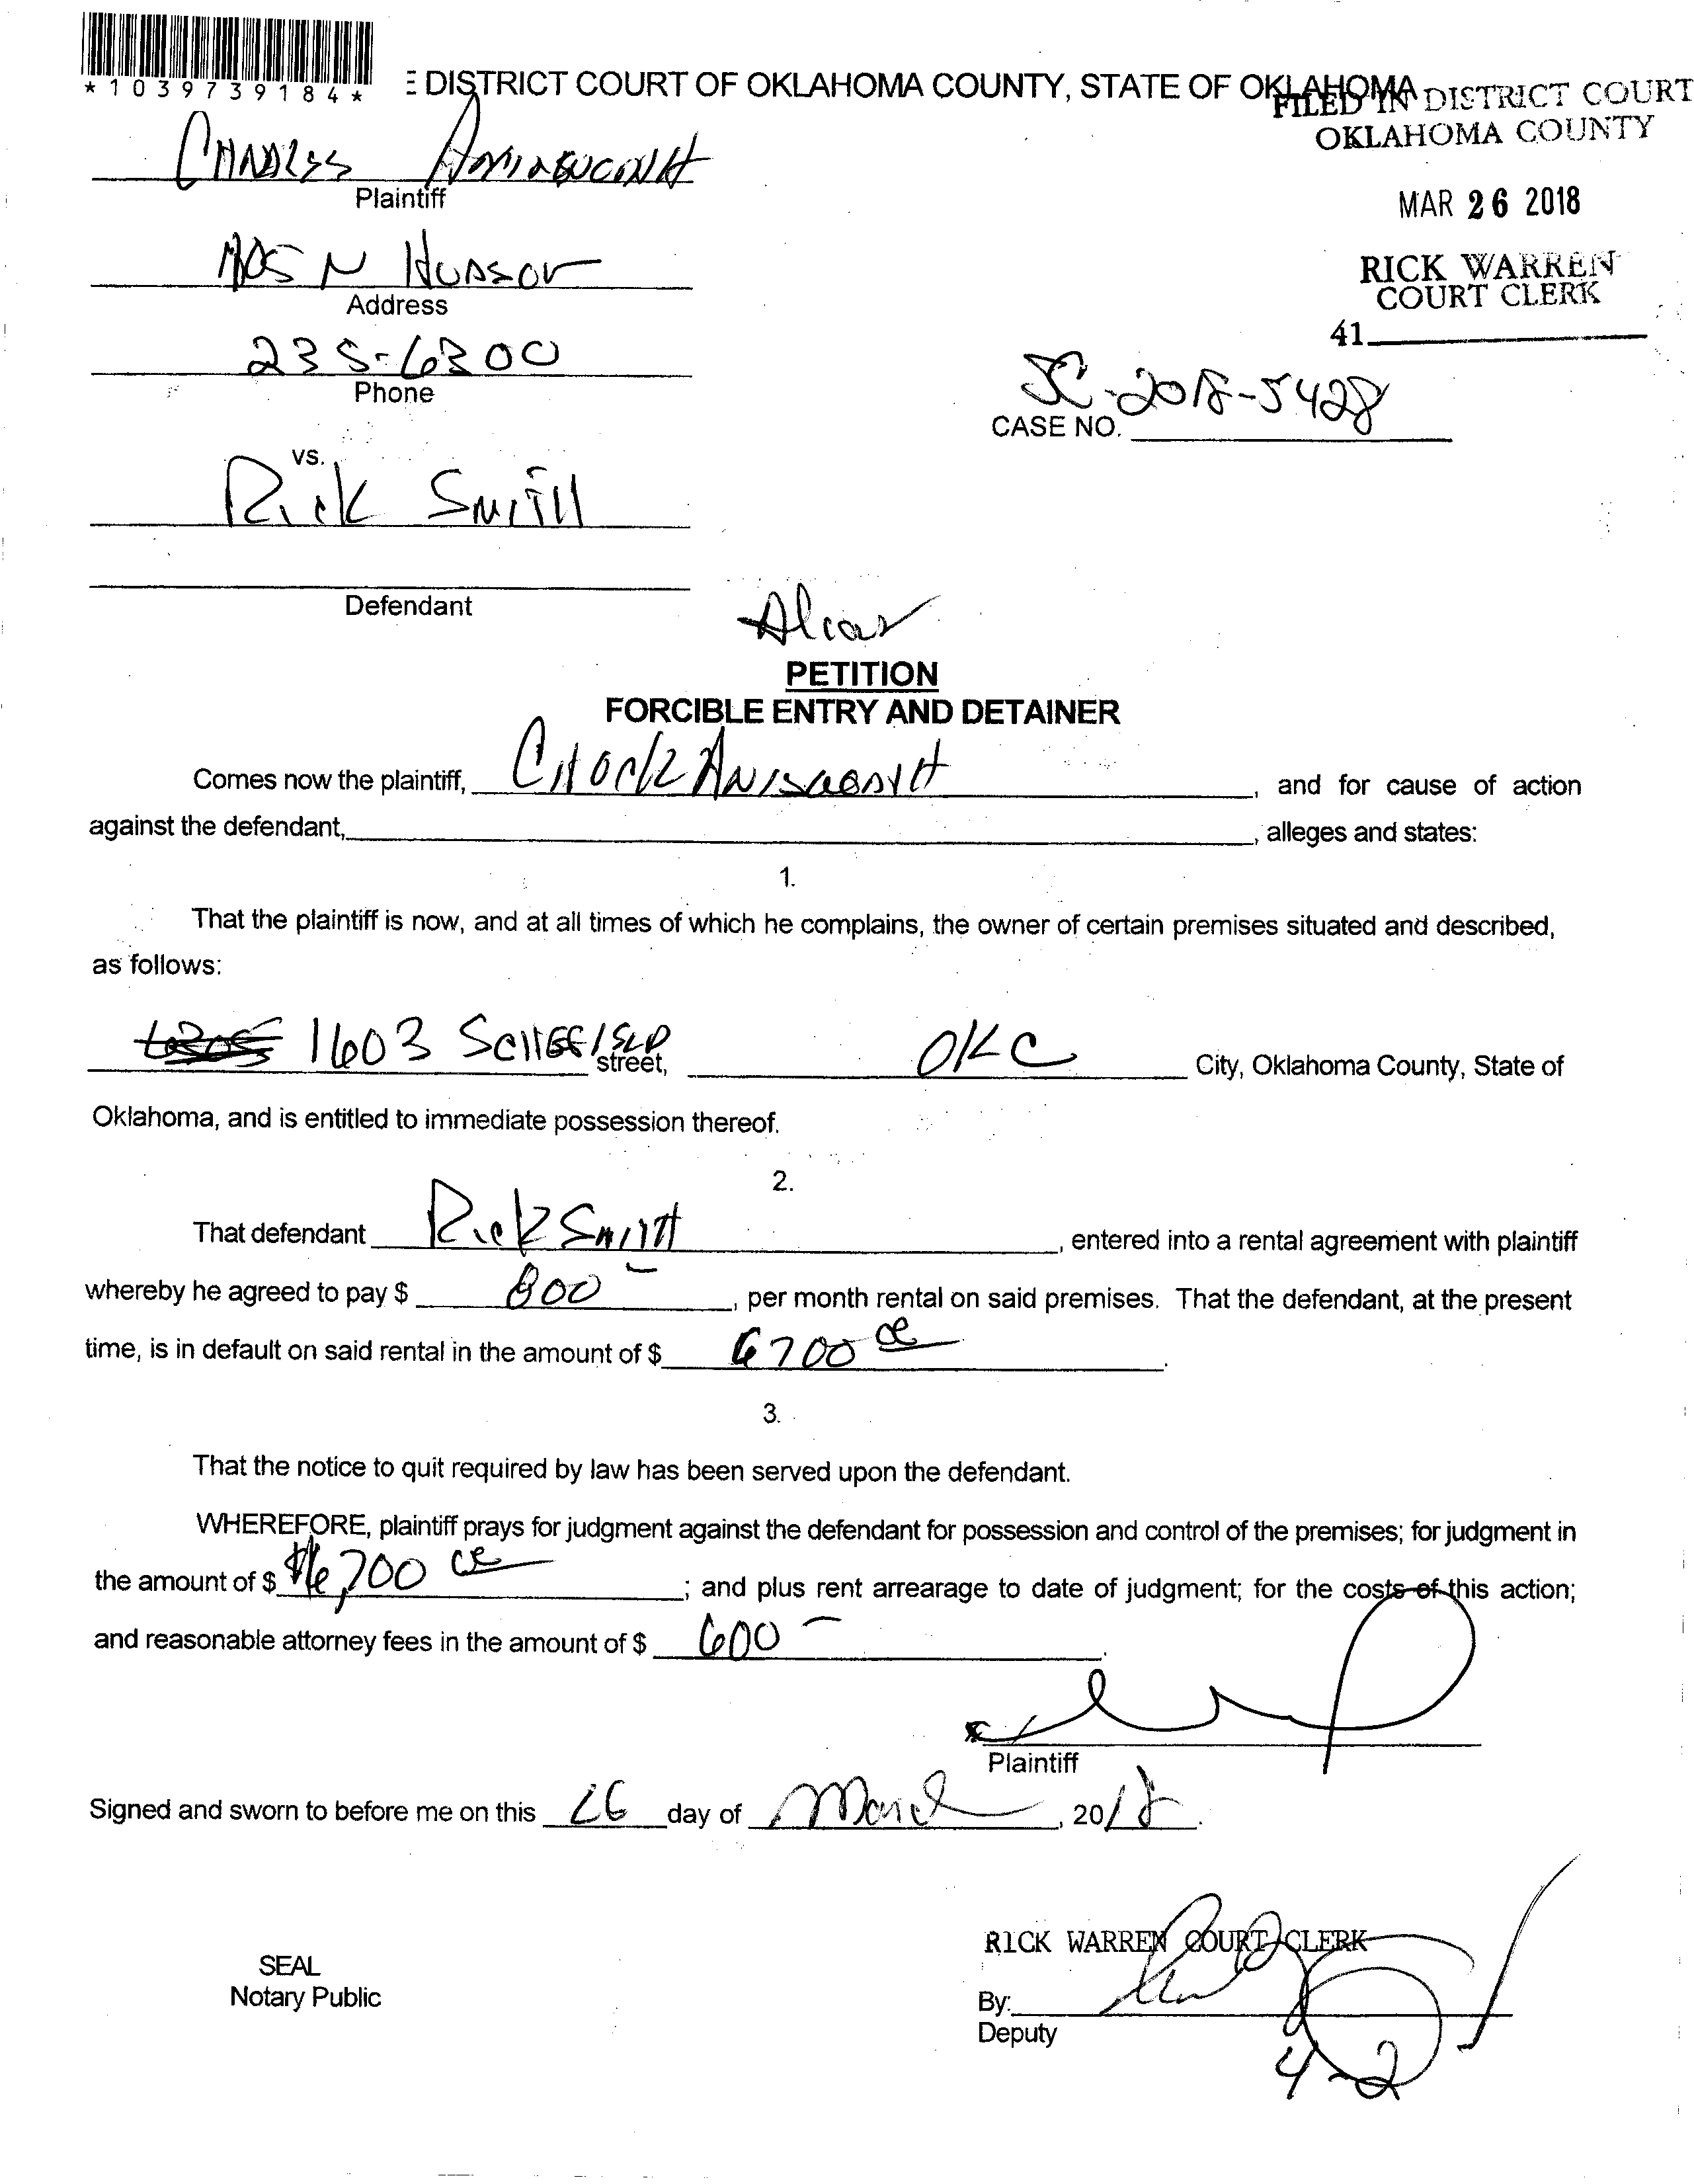 *1039739184*
E DISTRICT COURT OF OKLAHOMA COUNTY, STATE OF OKLAHOMA
FILED IN DISTRICT COURT
OKLAHOMA COUNTY
MAR 26 2018
RICK WARREN
COURT CLERK
41
Charles
Plaintiff
N Hudson
Address
235-6300
Phone
SC-2018-5428
CASE NO.
vs.
Rick Smith
Defendant
PETITION
FORCIBLE ENTRY AND DETAINER
Comes now the plaintiff, Chuck , and for cause of action
against the defendant, , alleges and states:
1.
That the plaintiff is now, and at all times of which he complains, the owner of certain premises situated and described,
as follows:
1603 street, OKC City, Oklahoma County, State of
Oklahoma, and is entitled to immediate possession thereof.
2.
That defendant Rick Smith , entered into a rental agreement with plaintiff
whereby he agreed to pay $ 800 , per month rental on said premises. That the defendant, at the present
time, is in default on said rental in the amount of $ 6700 .
3.
That the notice to quit required by law has been served upon the defendant.
WHEREFORE, plaintiff prays for judgment against the defendant for possession and control of the premises; for judgment in
the amount of $ $6,700 ; and plus rent arrearage to date of judgment; for the costs of this action;
and reasonable attorney fees in the amount of $ 600 .
Plaintiff
Signed and sworn to before me on this 26 day of March , 2018.
RICK WARREN COURT CLERK
SEAL
Notary Public
By:
Deputy
4-2